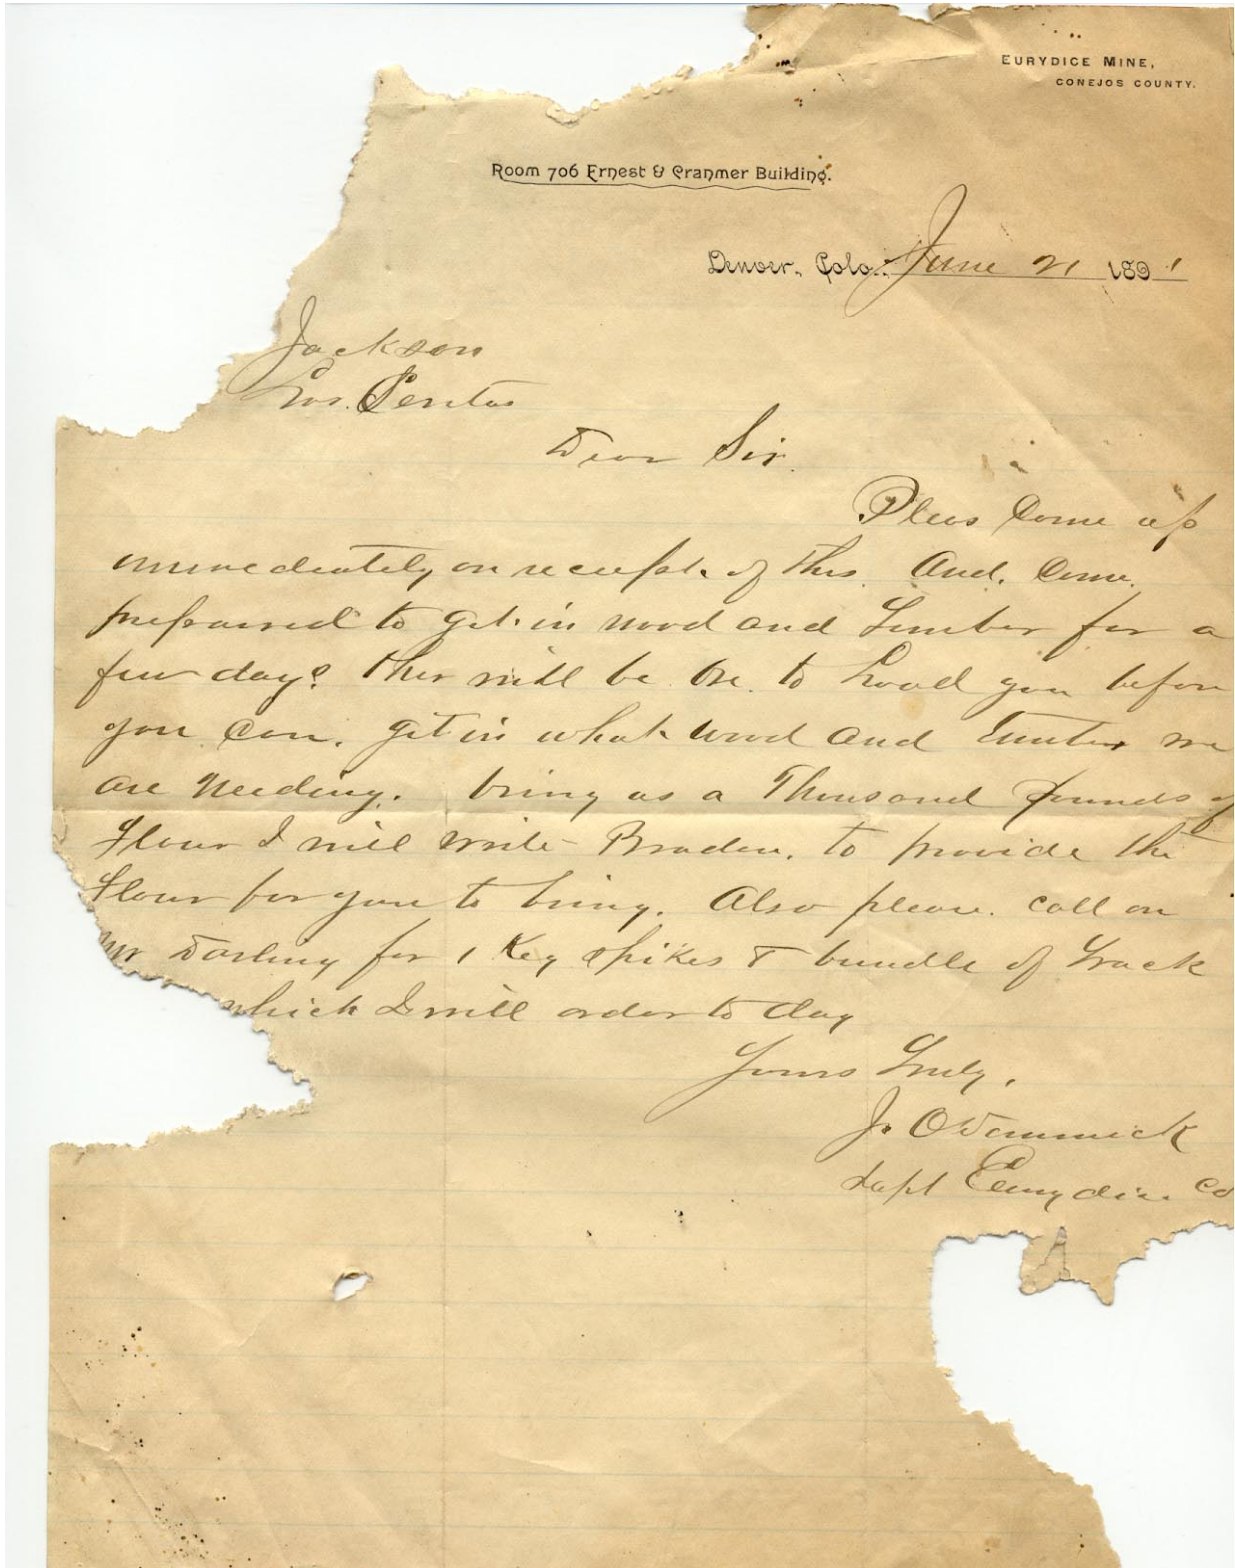 EURYDICE MINE,
CONEJOS COUNTY.
Room 706 Ernest & Cranmer Building.
Denver, Colo., June 21 1891
Jackson
Dear Sir.
Pleas Come up
immediately on of this. And. Come.
prepaired to get in wood and Timber for a
few days. ther will be to you before
you Can. get in what wood and Timber we
are Needing. bring us a Thousand pounds of
flour I will write Braden. to provide the
flour for you to bring. Also please. call on
Mr Darling for 1 Keg Spikes & bundle of Track
which I will order to day
Yours Truly,
J.
Supt Eurydice Co